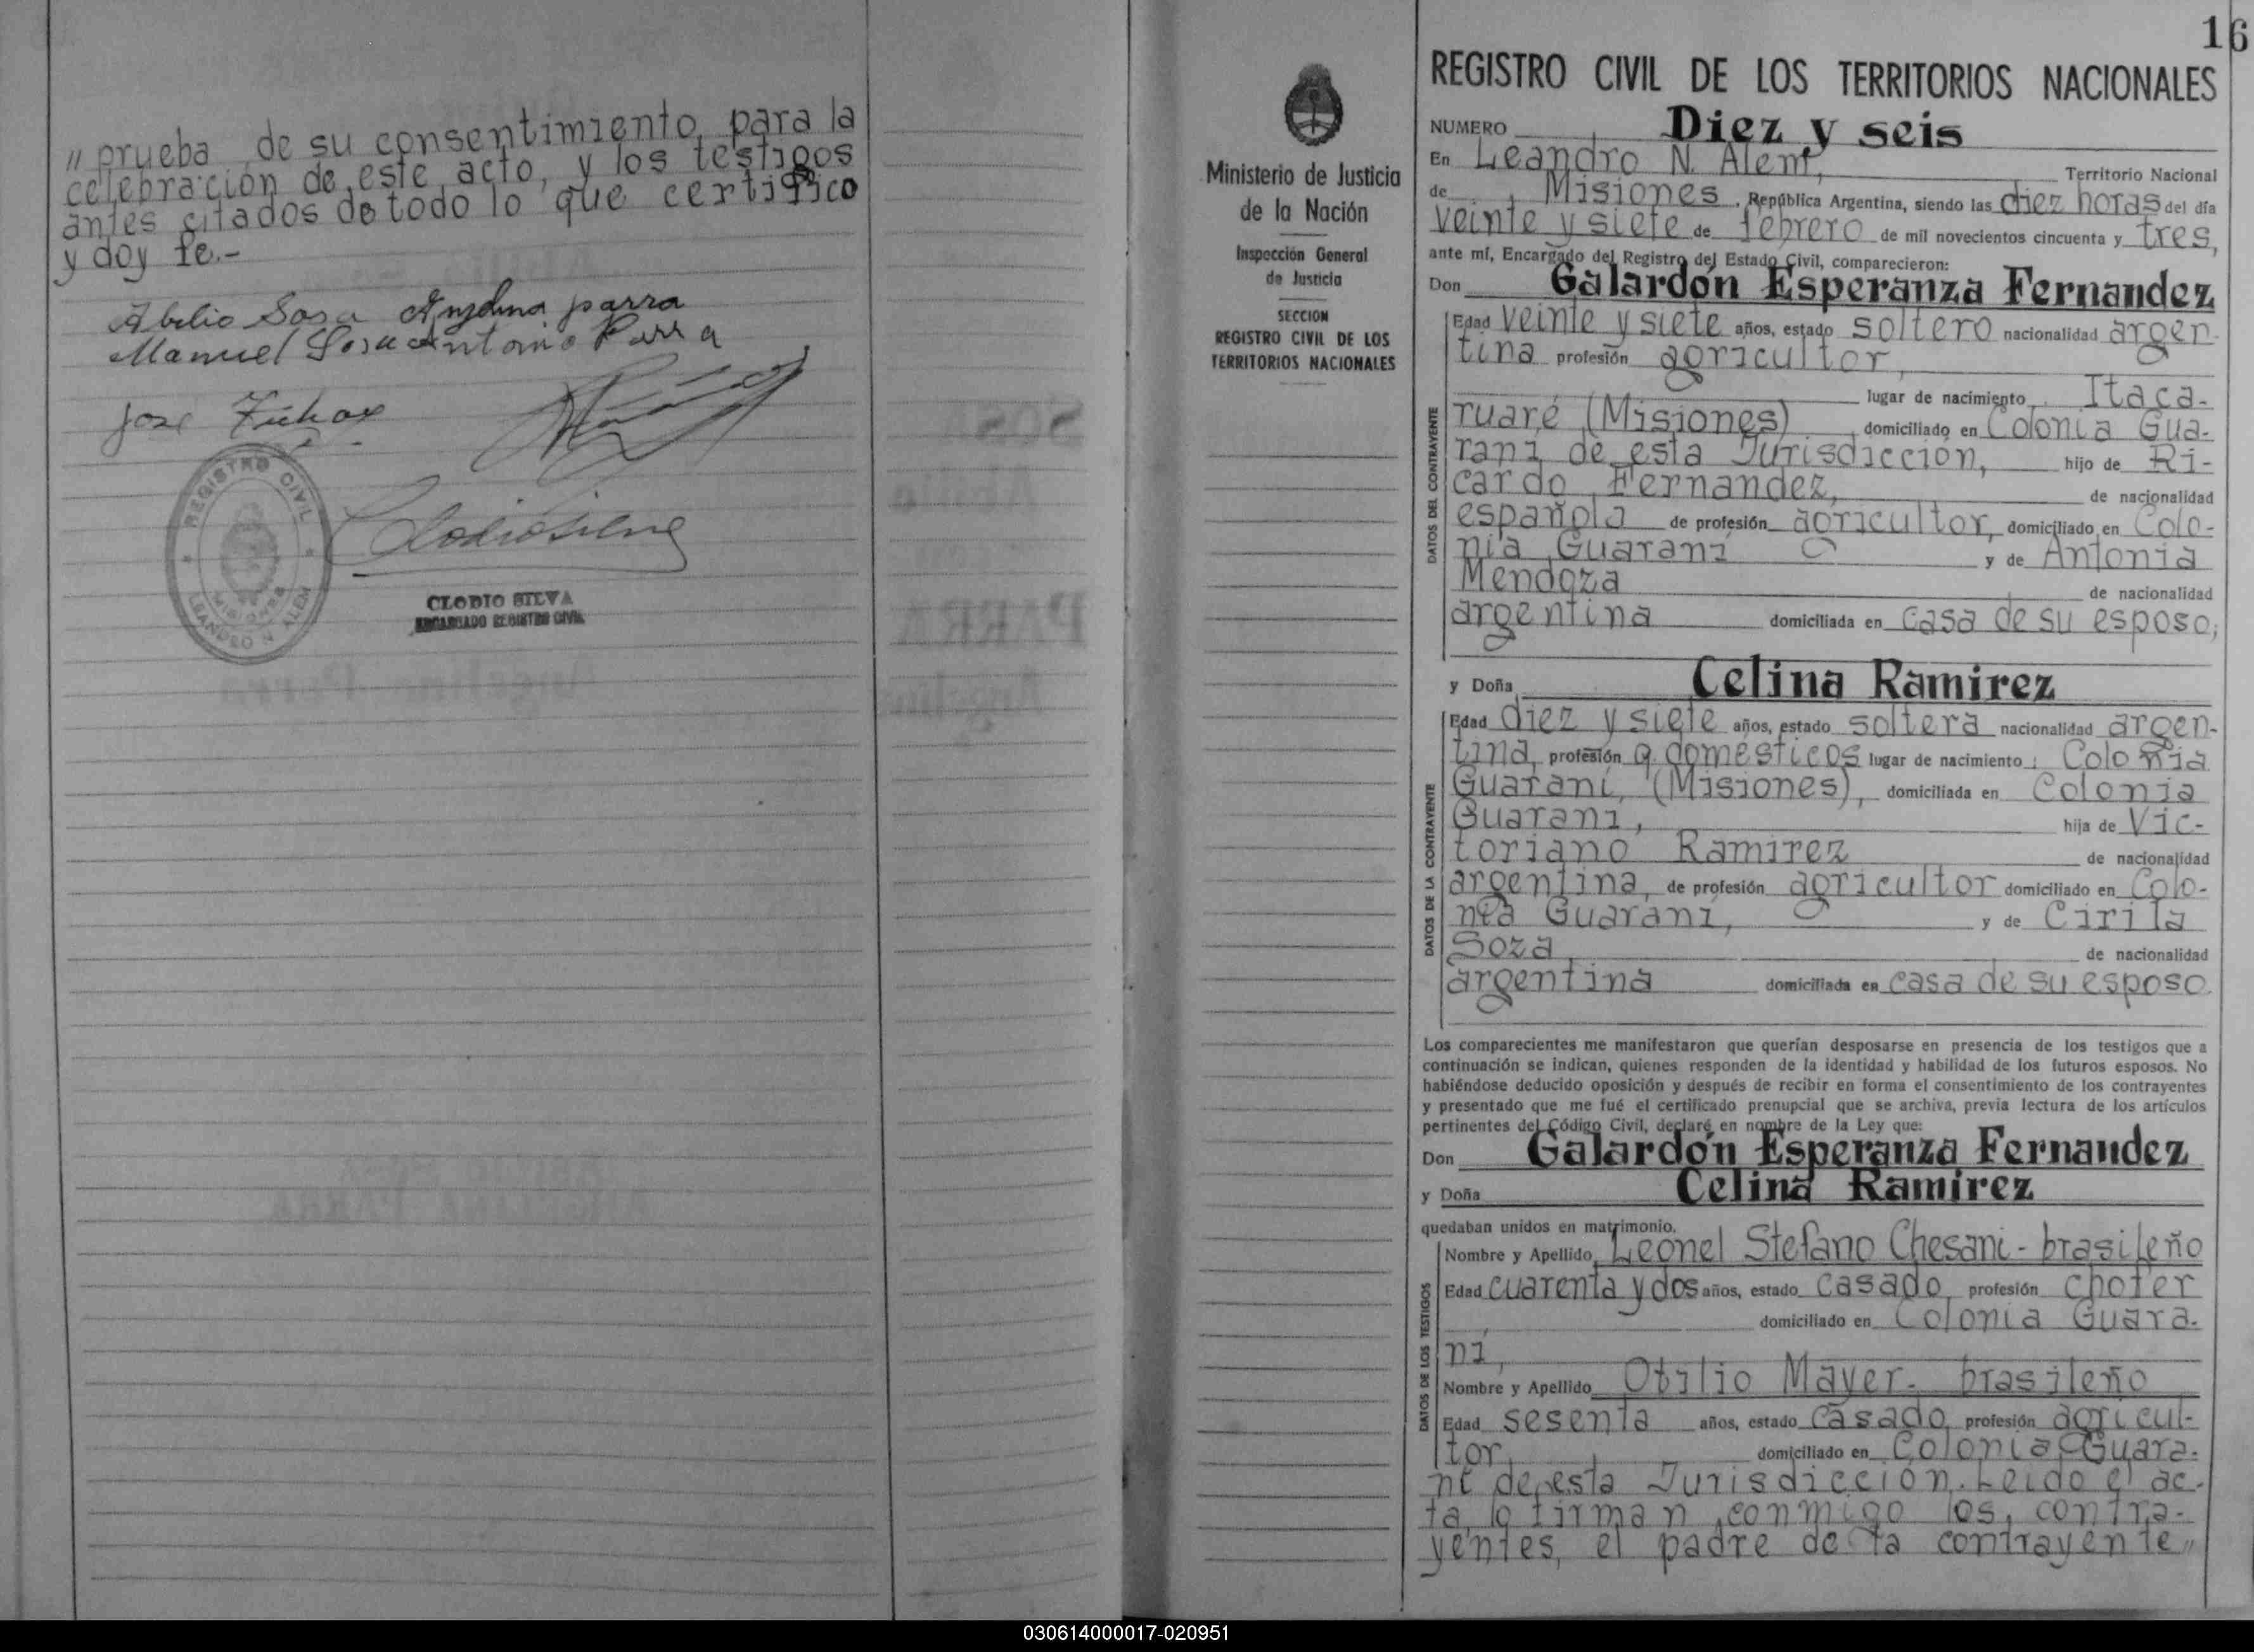 " prueba de su consentimiento para la
celebración de este acto, y los testigos
antes citados de todo lo que certifico
y doy fe.-
Abilio Sosa Anjelina parra
Manuel Sosa Antonio Parra
Jose
REGISTRO CIVIL
MISIONES
LEANDRO N. ALEM
Clodio Silva
CLODIO SILVA
ENCARGADO REGISTRO CIVIL
16
Ministerio de Justicia
de la Nación
Inspección General
de Justicia
SECCION
REGISTRO CIVIL DE LOS
TERRITORIOS NACIONALES
REGISTRO CIVIL DE LOS TERRITORIOS NACIONALES
NUMERO Diez y seis
En Leandro N. Alem, Territorio Nacional
de Misiones, República Argentina, siendo las diez horas del día
veinte y siete de febrero de mil novecientos cincuenta y tres,
ante mí, Encargado del Registro del Estado Civil, comparecieron:
Don Galardón Esperanza Fernandez
DATOS DEL CONTRAYENTE
Edad veinte y siete años, estado soltero nacionalidad argen-
tina profesión agricultor,
lugar de nacimiento Itaca-
ruaré (Misiones) domiciliado en Colonia Gua-
raní de esta Jurisdicción, hijo de Ri-
cardo Fernandez, de nacionalidad
española de profesión agricultor, domiciliado en Colo-
nia Guaraní y de Antonia
Mendoza de nacionalidad
argentina domiciliada en casa de su esposo;
y Doña Celina Ramirez
DATOS DE LA CONTRAYENTE
Edad diez y siete años, estado soltera nacionalidad argen-
tina, profesión q. domésticos lugar de nacimiento: Colonia
Guaraní, (Misiones), domiciliada en Colonia
Guaraní, hija de Vic-
toriano Ramirez de nacionalidad
argentina, de profesión agricultor domiciliado en Colo-
nia Guaraní, y de Cirila
Soza de nacionalidad
argentina domiciliada en casa de su esposo.
Los comparecientes me manifestaron que querían desposarse en presencia de los testigos que a
continuación se indican, quienes responden de la identidad y habilidad de los futuros esposos. No
habiéndose deducido oposición y después de recibir en forma el consentimiento de los contrayentes
y presentado que me fué el certificado prenupcial que se archiva, previa lectura de los artículos
pertinentes del Código Civil, declaré en nombre de la Ley que:
Don Galardón Esperanza Fernandez
y Doña Celina Ramirez
quedaban unidos en matrimonio.
DATOS DE LOS TESTIGOS
Nombre y Apellido Leonel Stefano Chesani - brasileño
Edad cuarenta y dos años, estado casado profesión chofer
domiciliado en Colonia Guara-
ní,
Nombre y Apellido Otilio Mayer - brasileño
Edad sesenta años, estado casado profesión agricul-
tor, domiciliado en Colonia Guara-
ní de esta Jurisdicción. Leído el ac-
ta, lo firman conmigo los contra-
yentes, el padre de la contrayente "
030614000017-020951